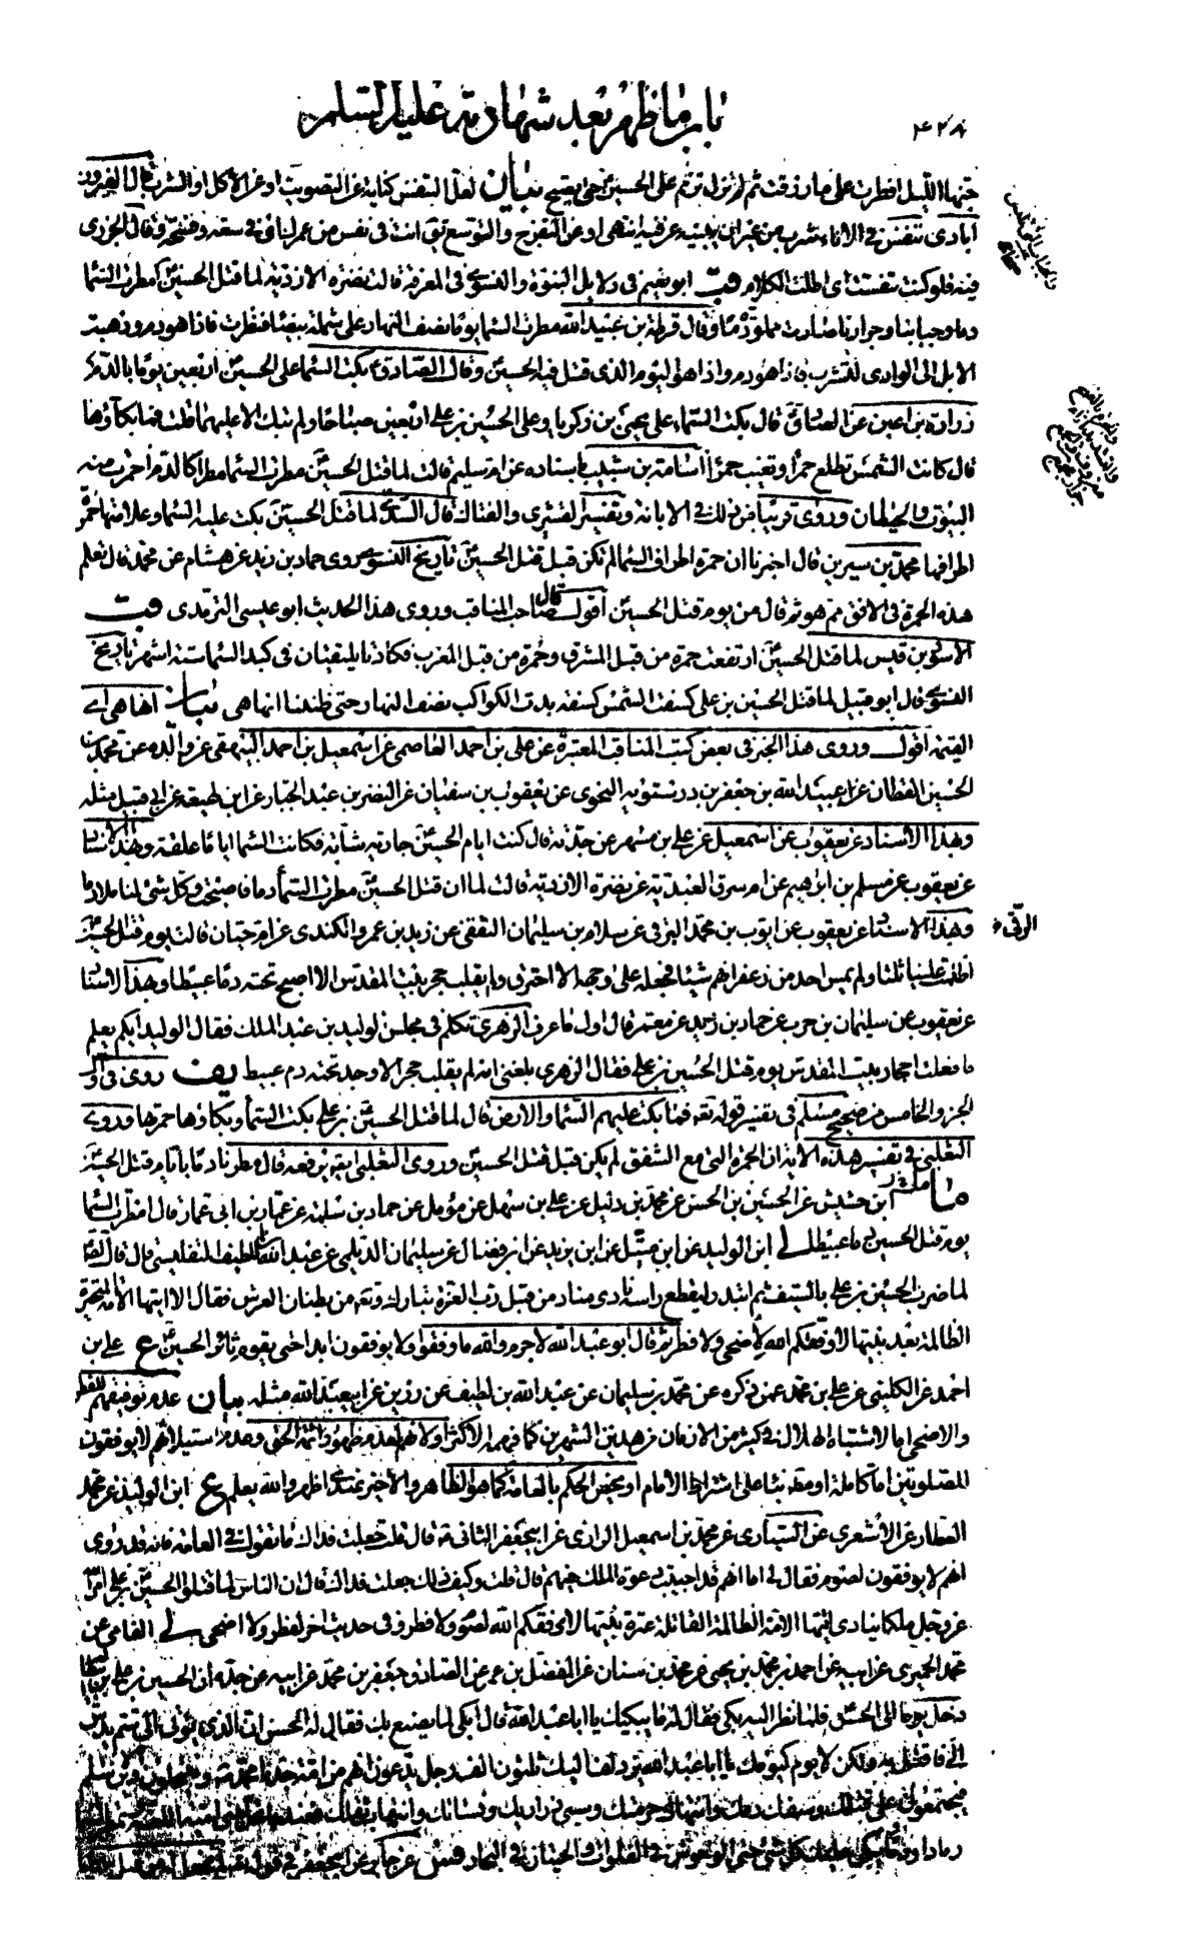 باب ما ظهر بعد شهادته عليه السلم
٤٢٨
جنها الليل افطرت على ما رزقت ثم لم تزل ترنم على الحسين حتى يصبح بيان لعل التنفس كناية عن التصويت او عن الاكل او الشرب قال الفيروز
ابادى تنفس فى الاناء شرب من غير ان يبينه عن فيه انتهى او عن التفرج والتوسع انت فى نفس من عمرك اى فى سعة وفسحة وقال الجزرى
فيه فلو كنت تنفست اى اطلت الكلام قب ابو نعيم فى دلايل النبوة والفسوى فى المعرفة قالت نضرة الازدية لما قتل الحسين مطرت السما
دما وحبابنا وجرارنا صارت مملوة دما وقال قرظة بن عبيد الله مطرت السما يوما نصف النهار على شملة بيضا فنظرت فاذا هو دم وذهبت
الابل الى الوادى للشرب فاذا هو دم واذا هو اليوم الذى قتل فيه الحسين وقال الصادق بكت السما على الحسين اربعين يوما بالدم
زرارة بن اعين عن الصادق قال بكت السماء على يحيى بن زكريا وعلى الحسين بن على اربعين صباحا ولم تبك الا عليهما قلت فما بكاؤها
قال كانت الشمس تطلع حمرا وتغيب حمرا اسامة بن شبيب باسناده عن ام سليم قالت لما قتل الحسين مطرت السما مطرا كالدم احمرت منه
البيوت والحيطان وروى قريبا من ذلك فى الابانة وتفسير القشيرى والفتال قال السدى لما قتل الحسين بكت عليه السما وعلامتها حمرة
اطرافها محمد بن سيرين قال اخبرنا ان حمرة اطراف السما لم تكن قبل قتل الحسين تاريخ النسوى روى حماد بن زيد عن هشام عن محمد قال تعلم
هذه الحمرة فى الافق مم هو ثم قال من يوم قتل الحسين اقول قال صاحب المناقب وروى هذا الحديث ابو عيسى الترمذى قب
الاسود بن قيس لما قتل الحسين ارتفعت حمرة من قبل المشرق وحمرة من قبل المغرب فكادتا يلتقيان فى كبد السما ستة اشهر تاريخ
النسوى قال ابو قبيل لما قتل الحسين بن على كسفت الشمس كسفة بدت الكواكب نصف النهار حتى ظننا انها هى بيان انها هى اى
القيمة اقول وروى هذا الخبر فى بعض كتب المناقب المعتبرة عن على بن احمد العاصمى عن اسمعيل بن احمد البيهقى عن والده عن محمد بن
الحسين القطان عن عبيد الله بن جعفر بن درستويه النحوى عن يعقوب بن سفيان عن النضر بن عبد الجبار عن ابن لهيعة عن ابى قبيل مثله
وبهذا الاسناد عن يعقوب عن اسمعيل عن على بن مسهر عن جدته قال كنت ايام الحسين جارية شابة فكانت السما اياما علقة وبهذا الاسنا
عن يعقوب عن مسلم بن ابرهيم عن ام سرق العبدية عن نضرة الازدية قالت لما ان قتل الحسين مطرت السما دما فاصبحت وكل شئ لنا ملا دما
وبهذا الاسناد عن يعقوب عن ايوب بن محمد الرقى عن سلام بن سليمان الثقفى عن زيد بن عمرو الكندى عن ام حيان قالت يوم قتل الحسين
اظلمت علينا ثلثا ولم يمس احد من زعفرانهم شيئا فجعله على وجهه الا احترق ولم يقلب حجر ببيت المقدس الا اصبح تحته دما عبيطا وبهذا الاسنا
عن يعقوب عن سليمان بن حرب عن حماد بن زيد عن معمر قال اول ما عرف الزهرى تكلم فى مجلس الوليد بن عبد الملك فقال الوليد ايكم يعلم
ما فعلت احجار بيت المقدس يوم قتل الحسين بن على فقال الزهرى بلغنى انه لم يقلب حجر الا وجد تحته دم عبيط يف روى فى او
الجزء الخامس من صحيح مسلم فى تفسير قوله تعه فما بكت عليهم السما والارض قال لما قتل الحسين بن على بكت السما وبكاؤها حمرتها وروى
الثعلبى فى تفسير هذه الاية ان الحمرة التى مع الشفق لم يكن قبل قتل الحسين وروى الثعلبى ايضا يرفعه قال مطرنا دما بايام قتل الحسين
ما ابن حشيش عن الحسين بن الحسن عن محمد بن دليل عن على بن سهل عن مؤمل عن حماد بن سلمة عن عمار بن ابى عمار قال امطرت السما
يوم قتل الحسين دما عبيطا لى ابن الوليد عن ابن متيل عن ابن يزيد عن ابن فضال عن سليمان الديلمى عن عبد الله بن لطيف التفليسى قال قال الصا
لما ضرب الحسين بن على بالسيف ثم ابتدر ليقطع راسه نادى مناد من قبل رب العزة تبارك وتعه من بطنان العرش فقال الا ايتها الامة المتحيرة
الظالمة بعد نبيها لا وفقكم الله لاضحى ولا فطر ثم قال ابو عبد الله لا جرم والله ما وفقوا ولا يوفقون ابدا حتى يقوم ثائر الحسين ع على بن
احمد عن الكلينى عن على بن محمد عمن ذكره عن محمد بن سليمان عن عبد الله بن لطيف عن رزين عن ابى عبد الله مثله بيان عدم توفيقهم للفطر
والاضحى اما لاشتباه الهلال فى كثير من الازمان فى هذين الشهرين كما فهمه الاكثر او لانهم لعدم ظهور ائمة الحق وعدم استيلائهم لا يوفقون
للصلوتين اما كاملة او مطلقا بناء على اشتراط الامام او يخص الحكم بالعامة كما هو الظاهر والاخير عندى اظهر والله يعلم ع ابن الوليد عن محمد
العطار عن الاشعرى عن السيارى عن محمد بن اسمعيل الرازى عن ابى جعفر الثانى قال قلت جعلت فداك ما تقول فى العامة فانه قد روى
انهم لا يوفقون لصوم فقال لى اما انهم قد اجيبت دعوة الملك فيهم قال قلت وكيف ذلك جعلت فداك قال ان الناس لما قتلوا الحسين بن على امر
عز وجل ملكا ينادى ايتها الامة الظالمة القاتلة عترة نبيها لا وفقكم الله لصوم ولا فطر وفى حديث اخر لفطر ولا اضحى لى الفامى عن
محمد الحميرى عن ابيه عن احمد بن محمد بن يحيى عن محمد بن سنان عن المفضل بن عمر عن الصادق جعفر بن محمد عن ابيه عن جده ان الحسين بن على بن ابيطا
دخل يوما الى الحسن فلما نظر اليه بكى فقال له ما يبكيك يا ابا عبد الله قال ابكى لما يصنع بك فقال له الحسن ان الذى يؤتى الى سم يدس
الى فاقتل به ولكن لا يوم كيومك يا ابا عبد الله يزدلف اليك ثلثون الف رجل يدعون انهم من امة جدنا محمد
فيجتمعون على قتلك وسفك دمك وانتهاك حرمتك وسبى ذراريك ونسائك وانتهاب ثقلك
رمادا ودما ويبكى عليك كل شئ حتى الوحوش فى الفلوات والحيتان فى البحار
الرقى